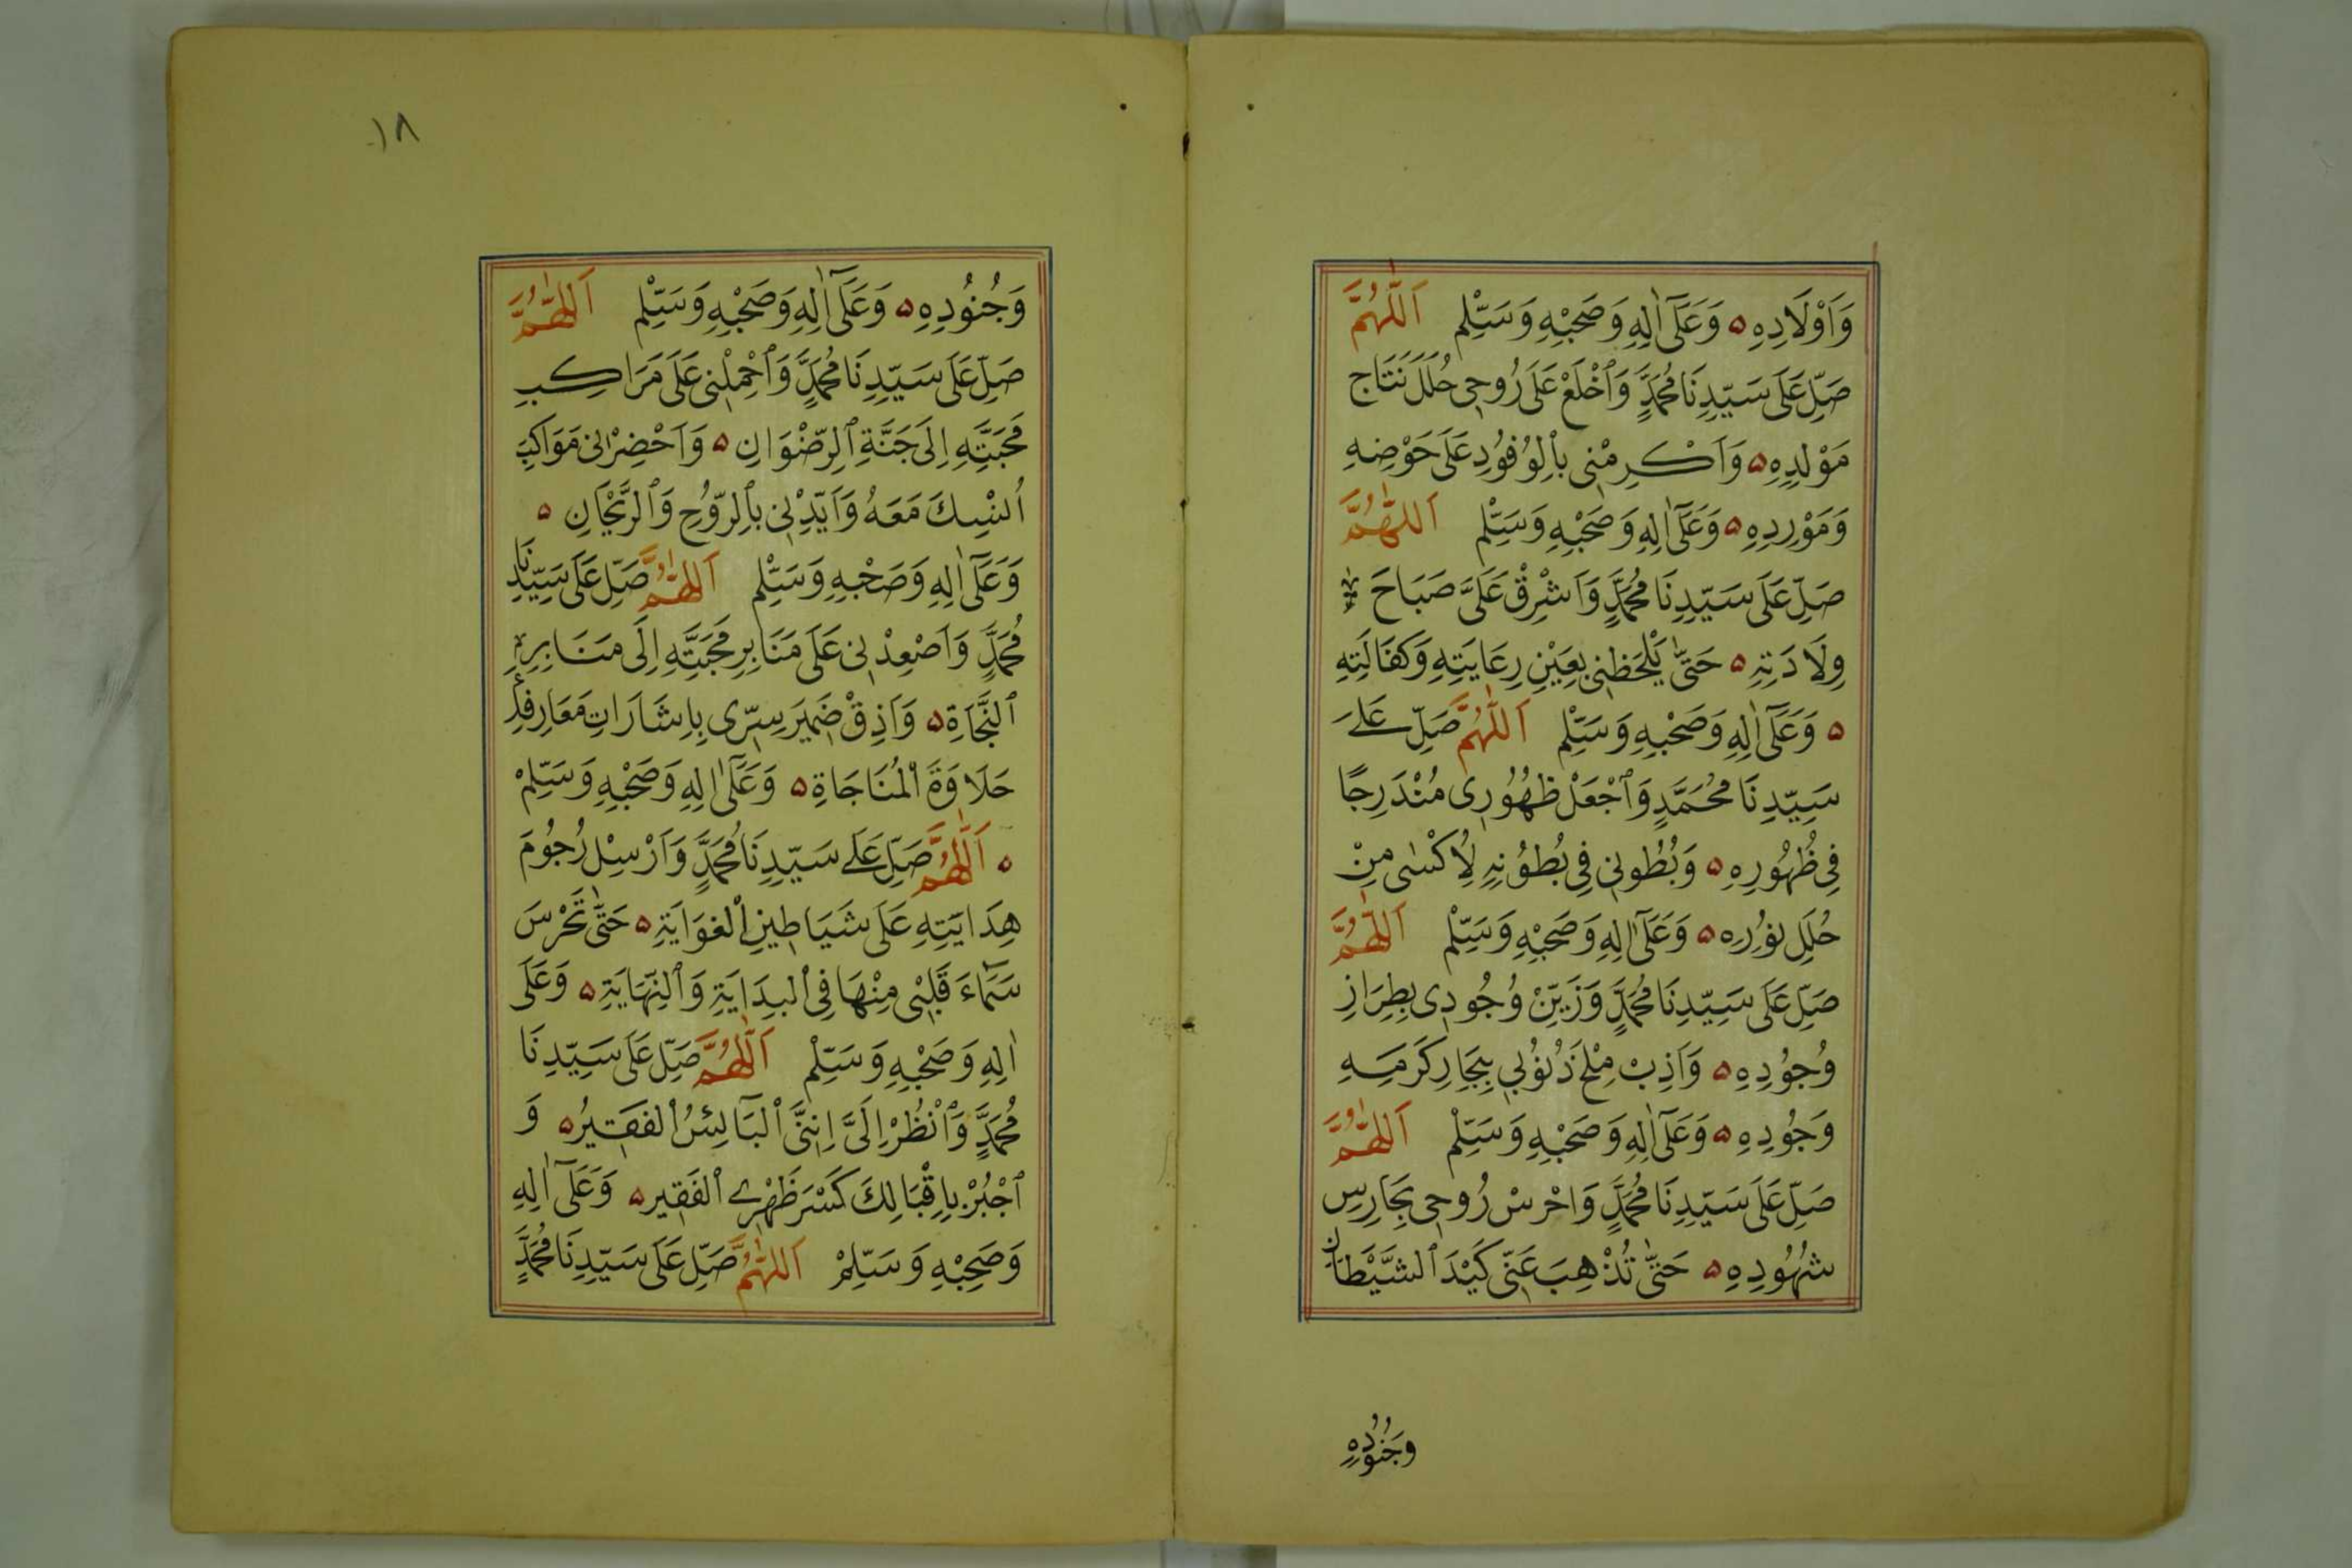 وَاَوْلَادِهِ ۵ وَعَلَىٰٓ اٰلِهِ وَصَحْبِهِ وَسَلِّمْ اَللّٰهُمَّ
صَلِّ عَلَى سَيِّدِنَا مُحَمَّدٍ وَٱخْلَعْ عَلَى رُوحِى حُلَلَ نَتَاجِ
مَوْلِدِهِ ۵ وَاَكْرِمْنِى بِاْلوُفُودِ عَلَى حَوْضِهِ
وَمَوْرِدِهِ ۵ وَعَلَىٰٓ اٰلِهِ وَصَحْبِهِ وَسَلِّمْ اَللّٰهُمَّ
صَلِّ عَلَى سَيِّدِنَا مُحَمَّدٍ وَاَشْرِقْ عَلَىَّ صَبَاحَ
وِلَادَتِهِ ۵ حَتّٰى يَلْحَظَنِى بِعَيْنِ رِعَايَتِهِ وَكَفَالَتِهِ
۵ وَعَلَىٰٓ اٰلِهِ وَصَحْبِهِ وَسَلِّمْ اَللّٰهُمَّ صَلِّ عَلَى
سَيِّدِنَا مُحَمَّدٍ وَٱجْعَلْ ظُهُورِى مُنْدَرِجًا
فِى ظُهُورِهِ ۵ وَبُطُونِى فِى بُطُونِهِ لِاُكْسٰى مِنْ
حُلَلِ نُورِهِ ۵ وَعَلَىٰٓ اٰلِهِ وَصَحْبِهِ وَسَلِّمْ اَللّٰهُمَّ
صَلِّ عَلَى سَيِّدِنَا مُحَمَّدٍ وَزَيِّنْ وُجُودِى بِطِرَازِ
وُجُودِهِ ۵ وَاَذِبْ مِلْحَ ذُنُوبِى بِبِحَارِ كَرَمِهِ
وَجُودِهِ ۵ وَعَلَىٰٓ اٰلِهِ وَصَحْبِهِ وَسَلِّمْ اَللّٰهُمَّ
صَلِّ عَلَى سَيِّدِنَا مُحَمَّدٍ وَاحْرُسْ رُوحِى بِحَارِسِ
شُهُودِهِ ۵ حَتّٰى تُذْهِبَ عَنِّى كَيْدَ ٱلشَّيْطَانِ
وَجُنُودِهِ
١٨
وَجُنُودِهِ ۵ وَعَلَىٰٓ اٰلِهِ وَصَحْبِهِ وَسَلِّمْ اَللّٰهُمَّ
صَلِّ عَلَى سَيِّدِنَا مُحَمَّدٍ وَٱحْمِلْنِى عَلَى مَرَاكِبِ
مَحَبَّتِهِ اِلَى جَنَّةِ ٱلرِّضْوَانِ ۵ وَاَحْضِرْنِى مَوَاكِبَ
اُنْسِكَ مَعَهُ وَاَيِّدْنِى بِٱلرَّوْحِ وَٱلرَّيْحَانِ ۵
وَعَلَىٰٓ اٰلِهِ وَصَحْبِهِ وَسَلِّمْ اَللّٰهُمَّ صَلِّ عَلَى سَيِّدِنَا
مُحَمَّدٍ وَاَصْعِدْنِى عَلَى مَنَابِرِ مَحَبَّتِهِ اِلَى مَنَابِرِ
ٱلنَّجَاةِ ۵ وَاَذِقْ ضَمِيرَ سِرِّى بِاِشَارَاتِ مَعَارِفِهِ
حَلَاوَةَ اْلمُنَاجَاةِ ۵ وَعَلَىٰٓ اٰلِهِ وَصَحْبِهِ وَسَلِّمْ
۵ اَللّٰهُمَّ صَلِّ عَلَى سَيِّدِنَا مُحَمَّدٍ وَاَرْسِلْ رُجُومَ
هِدَايَتِهِ عَلَى شَيَاطِينِ اْلغَوَايَةِ ۵ حَتّٰى تَحْرُسَ
سَمَآءَ قَلْبِى مِنْهَا فِى اْلبِدَايَةِ وَٱلنِّهَايَةِ ۵ وَعَلَى
اٰلِهِ وَصَحْبِهِ وَسَلِّمْ اَللّٰهُمَّ صَلِّ عَلَى سَيِّدِنَا
مُحَمَّدٍ وَٱنْظُرْ اِلَىَّ اِنَّنِى اْلبَآئِسُ اْلفَقِيرُ ۵ وَ
ٱجْبُرْ بِاِقْبَالِكَ كَسْرَ ظَهْرِى اْلفَقِيرِ ۵ وَعَلَىٰٓ اٰلِهِ
وَصَحْبِهِ وَسَلِّمْ اَللّٰهُمَّ صَلِّ عَلَى سَيِّدِنَا مُحَمَّدٍ